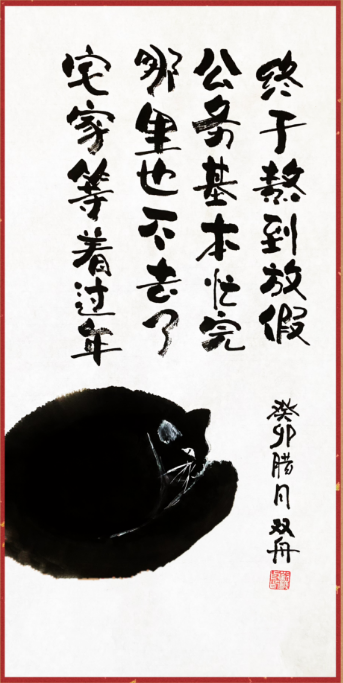 终于熬到放假
公务基本忙完
哪里也不去了
宅家等着过年
癸卯腊月双舟